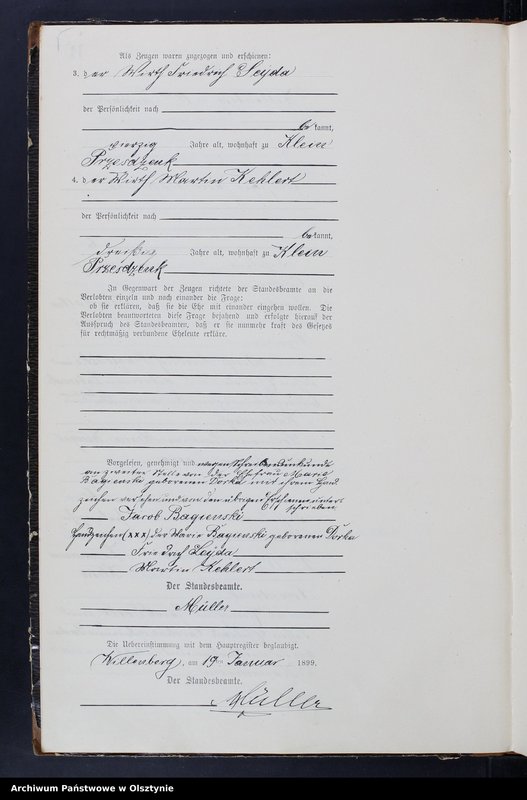 Als Zeugen waren zugezogen und erschienen:
3. der Wirth Friedrich Seyda
der Persönlichkeit nach
bekannt,
vierzig Jahre alt, wohnhaft zu Klein
Przesdzenk
4. der Wirth Martin Kehlert
der Persönlichkeit nach
bekannt,
dreißig Jahre alt, wohnhaft zu Klein
Przesdzenk
In Gegenwart der Zeugen richtete der Standesbeamte an die
Verlobten einzeln und nach einander die Frage:
ob sie erklären, daß sie die Ehe mit einander eingehen wollen. Die
Verlobten beantworteten diese Frage bejahend und erfolgte hierauf der
Ausspruch des Standesbeamten, daß er sie nunmehr kraft des Gesetzes
für rechtmäßig verbundene Eheleute erkläre.
Vorgelesen, genehmigt und wegen Schreibensunkunde
an zweiter Stelle von der Ehefrau Marie
Bagienski geborenen Dorka mit ihrem Hand
zeichen versehen und von den übrigen Erschienenen unter
schrieben
Jacob Bagienski
Handzeichen (XXX) der Marie Bagienski geborenen Dorka
Friedrich Seyda
Martin Kehlert
Der Standesbeamte.
Müller
Die Uebereinstimmung mit dem Hauptregister beglaubigt.
Willenberg, am 19 Januar 1899.
Der Standesbeamte.
Müller
Archiwum Państwowe w Olsztynie